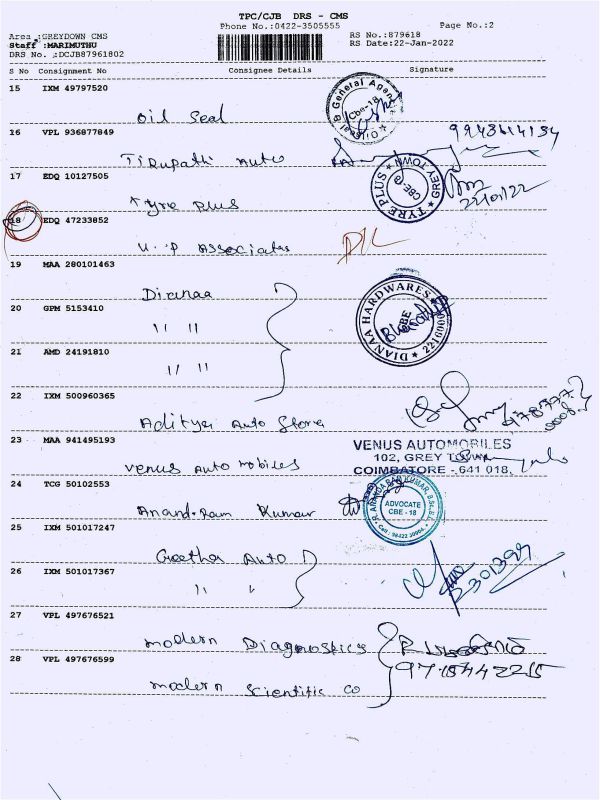 TPC/CJB DRS - CMS
Phone No.:0422-3505555 Page No.:2
Area :GREYDOWN CMS RS No.:879618
Staff :MARIMUTHU RS Date:22-Jan-2022
DRS No. :DCJB87961802
S No Consignment No Consignee Details Signature
15 IXM 49797520
Oil Seal
Oil Seal & General Agen Cbe-18
16 VPL 936877849
Tirupathi Auto 9943614134
17 EDQ 10127505
Tyre Plus
TYRE PLUS GREY TOWN CBE-18
22/01/22
18 EDQ 47233852
U.P Associates
19 MAA 280101463
Dianaa
DIANAA HARDWARES CBE 2216000
20 GPM 5153410
" "
21 AMD 24191810
" "
22 IXM 500960365
Aditya Auto Store
23 MAA 941495193
Venus Automobiles
VENUS AUTOMOBILES
102, GREY TOWN
COIMBATORE - 641 018.
24 TCG 50102553
Anand-Ram Kumar
ADVOCATE
CBE - 18
25 IXM 501017247
Geetha Auto
26 IXM 501017367
" "
27 VPL 497676521
Modern Diagnostics
28 VPL 497676599
Modern Scientific Co